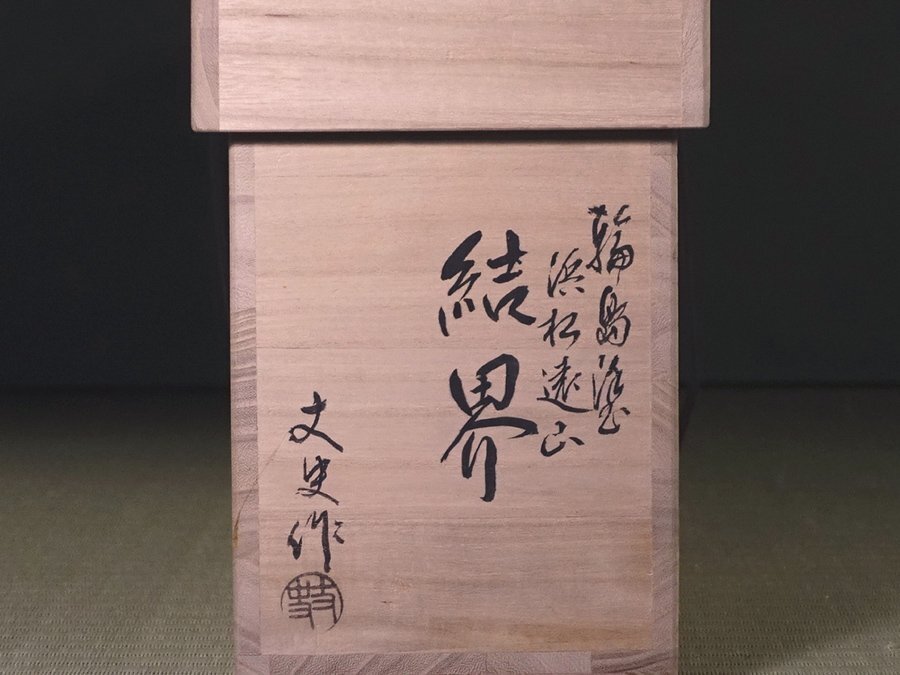 輪島塗
浜松遠山
結界
文史作